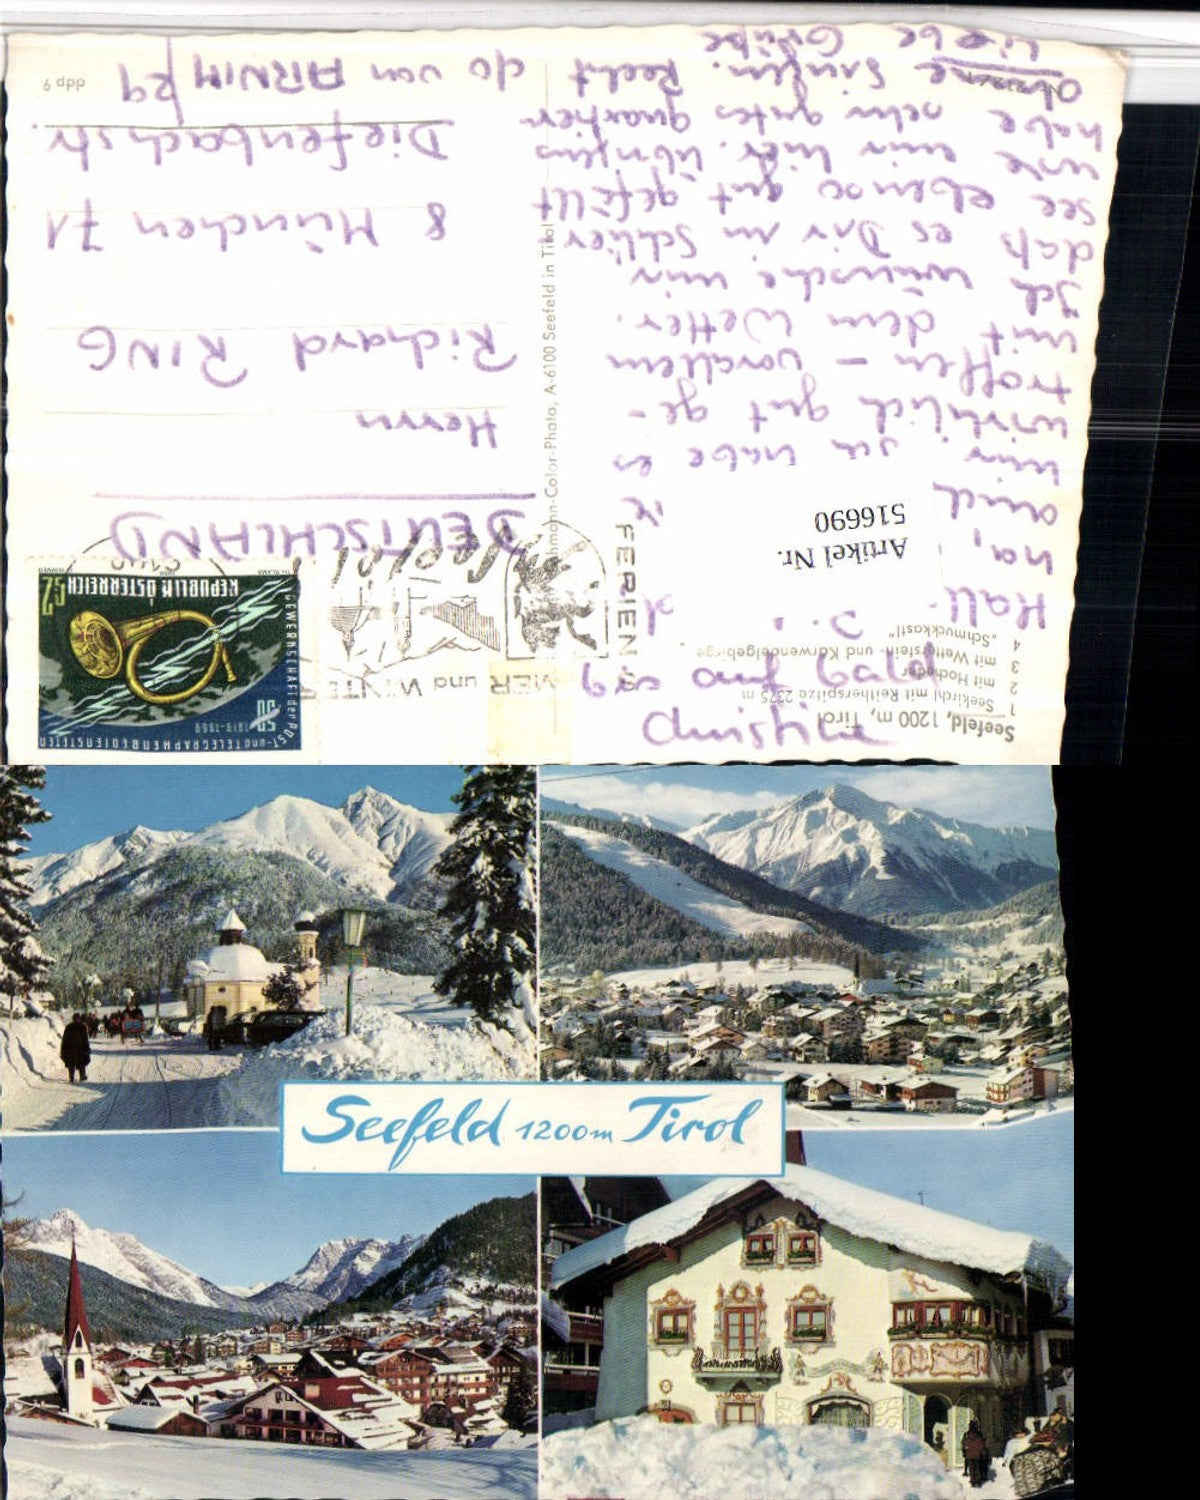 Seefeld, 1200 m, Tirol
1 Seekirchl mit Reitherspitze 2375 m
2 mit Hocheder
3 mit Wetterstein- und Karwendelgebirge
4 „Schmuckkastl"
Artikel Nr.
516690
Hall-
ha,
und
mir. Ich habe es
wirklich gut ge-
troffen - vorallem
mit dem Wetter.
Ich wünsche mir,
daß es Dir im Schlier
see ebenso gut gefällt
wie mir hier. Übrigens
habe sehr gutes Quartier
ohne
Recht
liebe Grüße
Christine
FERIEN
MER und WINTER
Seefeld
GEWERKSCHAFT der POST- und TELEGRAPHENBEDIENSTETEN
1919-1969
S2
REPUBLIK ÖSTERREICH
DEUTSCHLAND
Herrn
Richard RING
8 München 71
Diefenbachstr.
do von ARNIM 29
hmann-Color-Photo, A-6100 Seefeld in Tirol
ddp 9
Seefeld 1200m Tirol